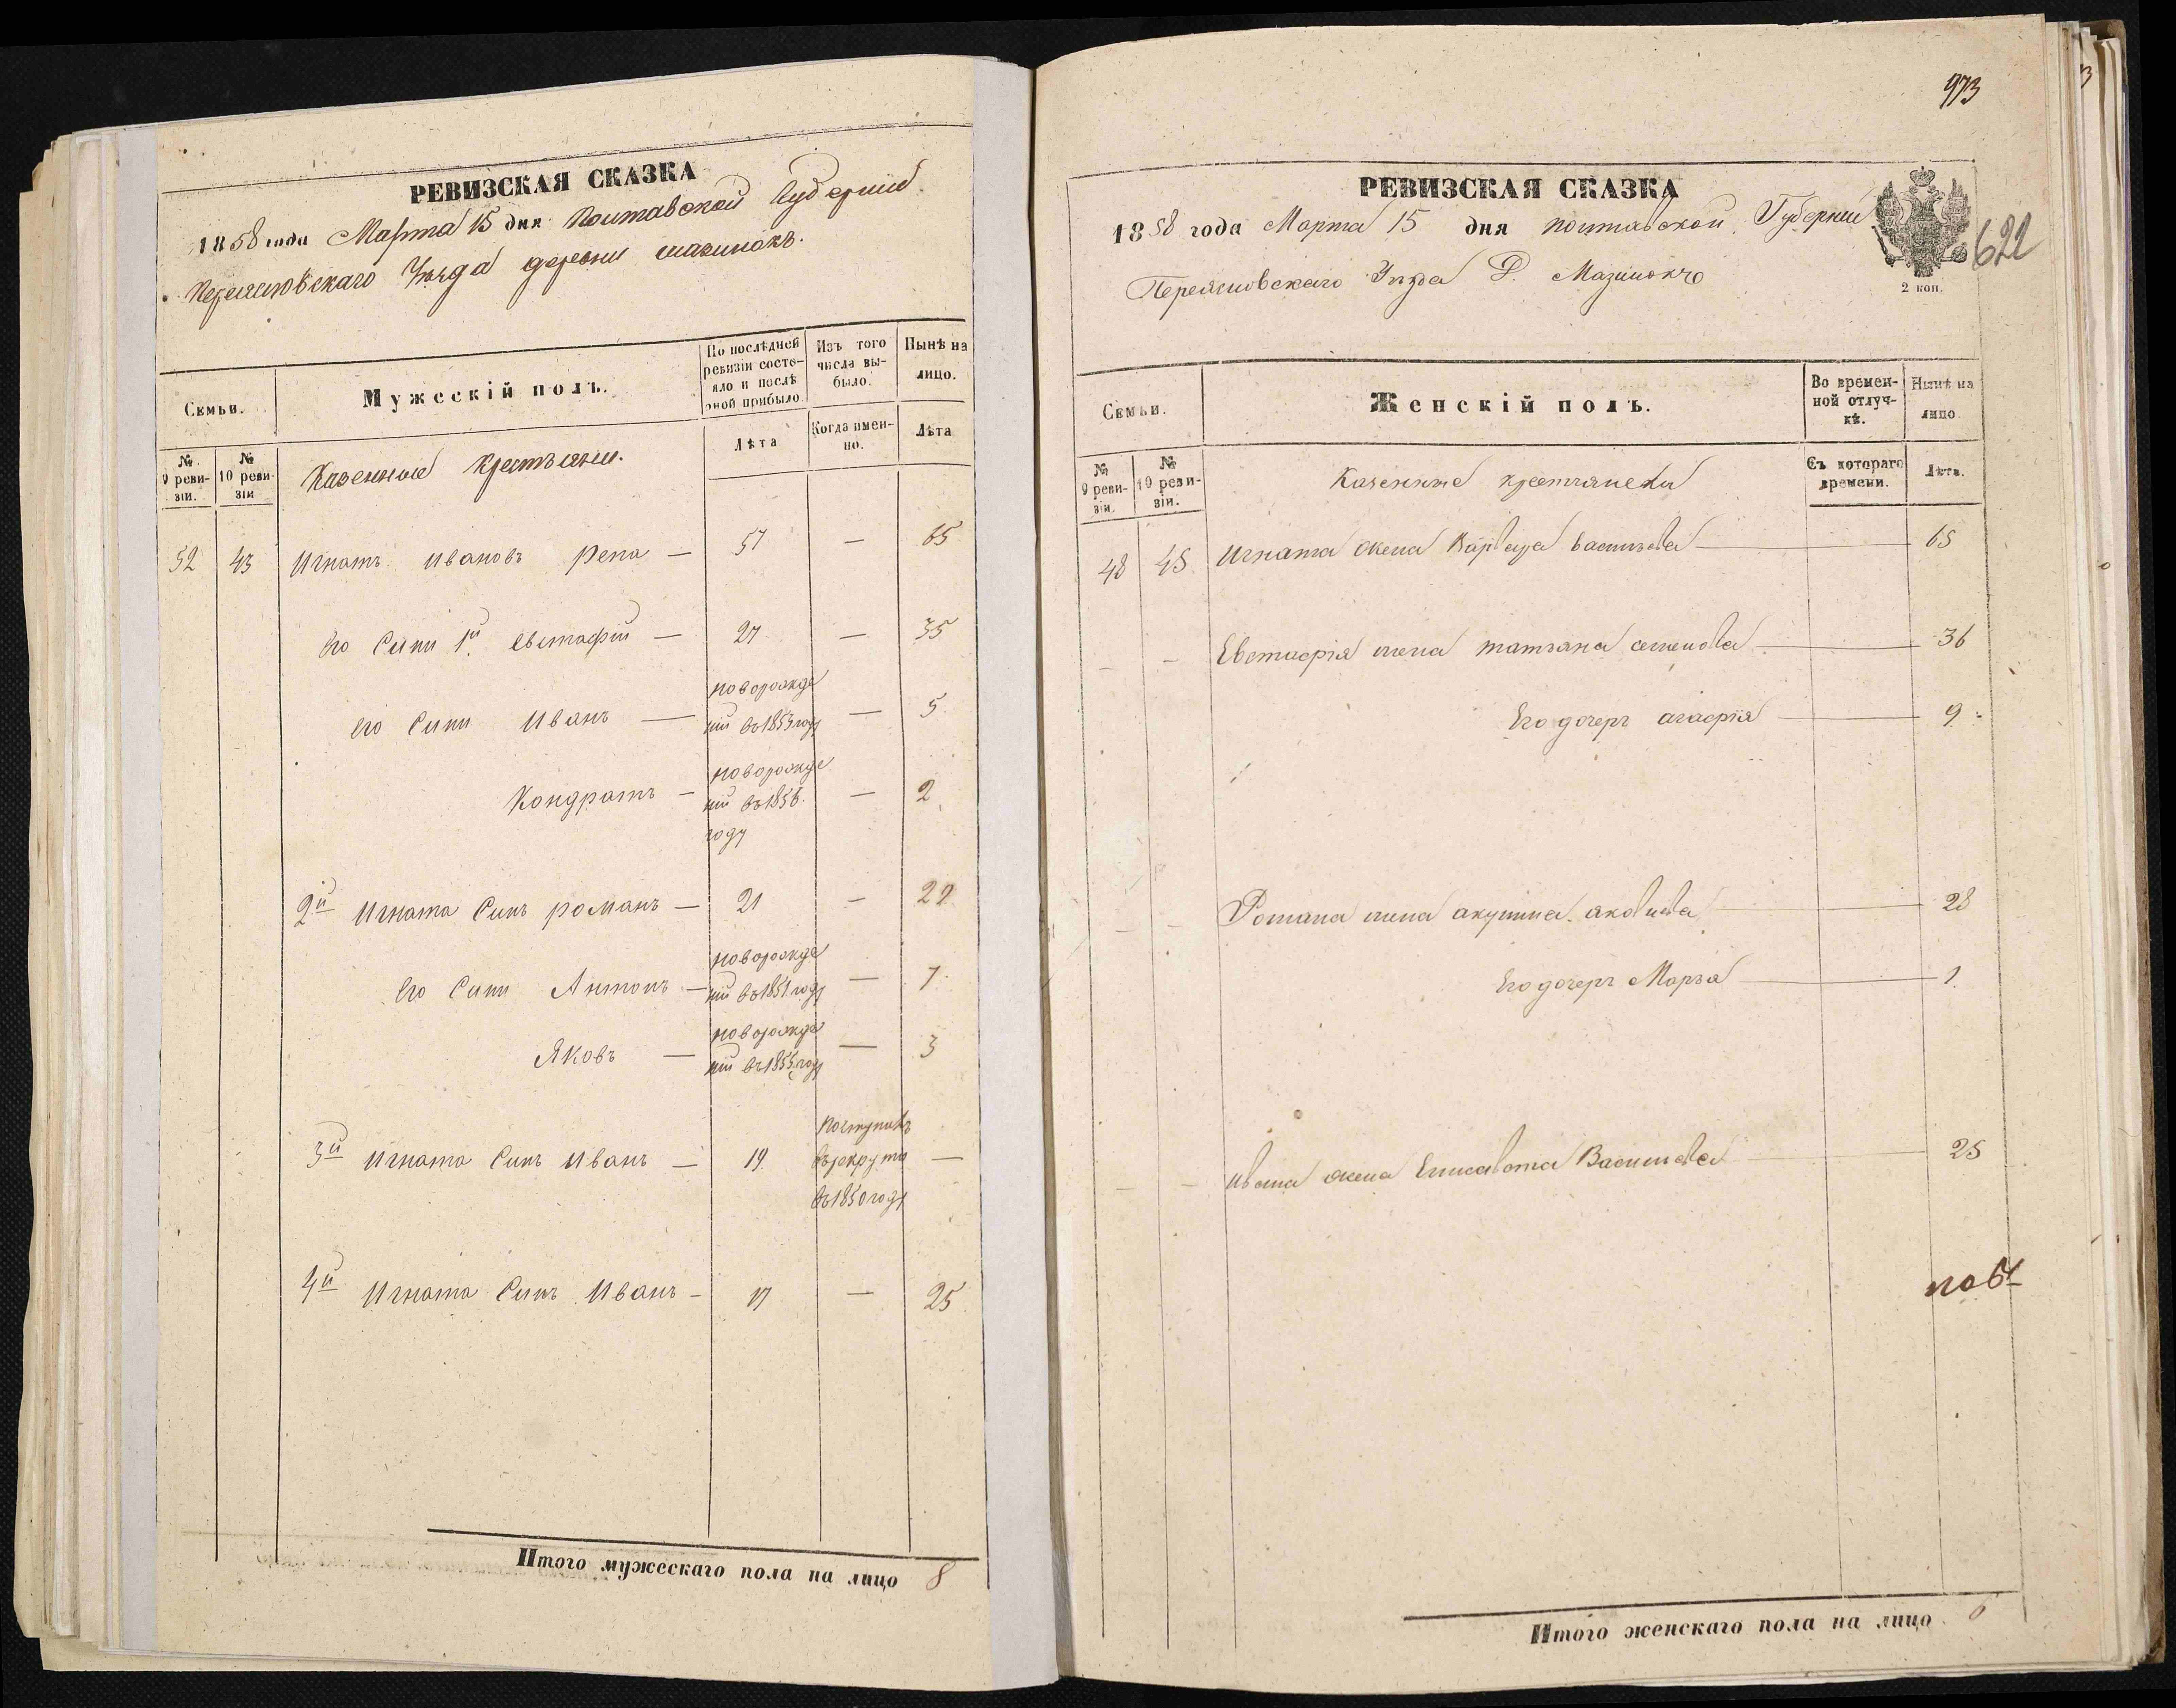 РЕВИЗСКАЯ СКАЗКА
1858 года Марта 15 дня Полтавской Губернии
Переясловскаго Уѣзда деревни Мазинокъ.
Семьи.
Мужескій полъ.
По послѣдней ревизіи состояло и послѣ оной прибыло.
Изъ того числа выбыло.
Нынѣ на лицо.
№ 9 ревизіи.
№ 10 ревизіи
Казенные крестьяни.
Лѣта
Когда именно.
Лѣта
52 43 Игнатъ Ивановъ Репа — 57 — 65
Его Сини 1й Евстафій — 27 — 35
его Сини Иванъ — новорожде
ний въ 1853 году — 5
Кондратъ — новорожде
ний въ 1856. — 2
году
2й Игната Синъ романъ — 21 — 29
Его Сини Антонъ — новорожде
ний въ 1851 году — 7
Яковъ — новорожде
ний въ 1855 году — 3
3й Игната Синъ Иванъ — 19. Поступилъ
въ рекруты —
въ 1850 году
4й Игната Синъ Иванъ — 17 — 25
Итого мужескаго пола на лицо 8
973
РЕВИЗСКАЯ СКАЗКА
1858 года Марта 15 дня полтавской Губернии
622
Переясловскаго Уѣзда Д. Мазинокъ
2 коп.
Семьи.
Женскій полъ.
Во временной отлучкѣ.
Нынѣ на лицо
№ 9 ревизіи.
№ 10 ревизіи.
Казенные крестьянски
Съ котораго времени.
Лѣта.
48 45 Игната жена Варвара васильева — 65
- - Евстафія жена татьяна семенова — 36
Его дочерь агафія — 9
- - Романа жена акулина яковлева — 28
Его дочерь Марья — 1
- - Ивана жена Елисавета Васильева — 25
Итого женскаго пола на лицо 6